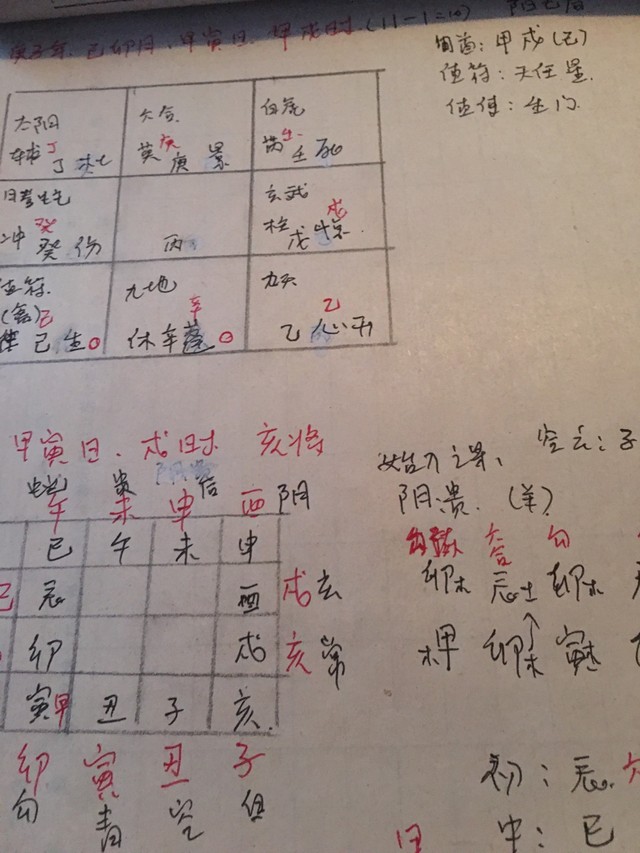 庚子年、己卯月、甲寅日、甲戌时(11-1=10)
旬首:甲戌(己)
值符:天任星
值使:生门
太阴 六合 白虎
丁 庚
辅 丁 杜 英 庚 景 芮 壬 死
玄武
癸 戊
冲 癸 伤 丙 柱 戊 惊
值符 九地 九天
(禽)己 辛 乙
己 生 休 辛 蓬 乙 心 开
甲寅日、戌时 亥将
阴贵
始入之课、 空亡:子
阴贵(羊)
蛇 贵 后
午 未 申 酉 阴
巳 午 未 申
六合 勾
卯木 辰土 卯木
己 辰 酉 戌 玄
卯 戌 亥 常
木甲 卯木 寅木
寅 甲 丑 子 亥
卯 寅 丑 子
勾 青 空
初:辰 六
中:巳
日